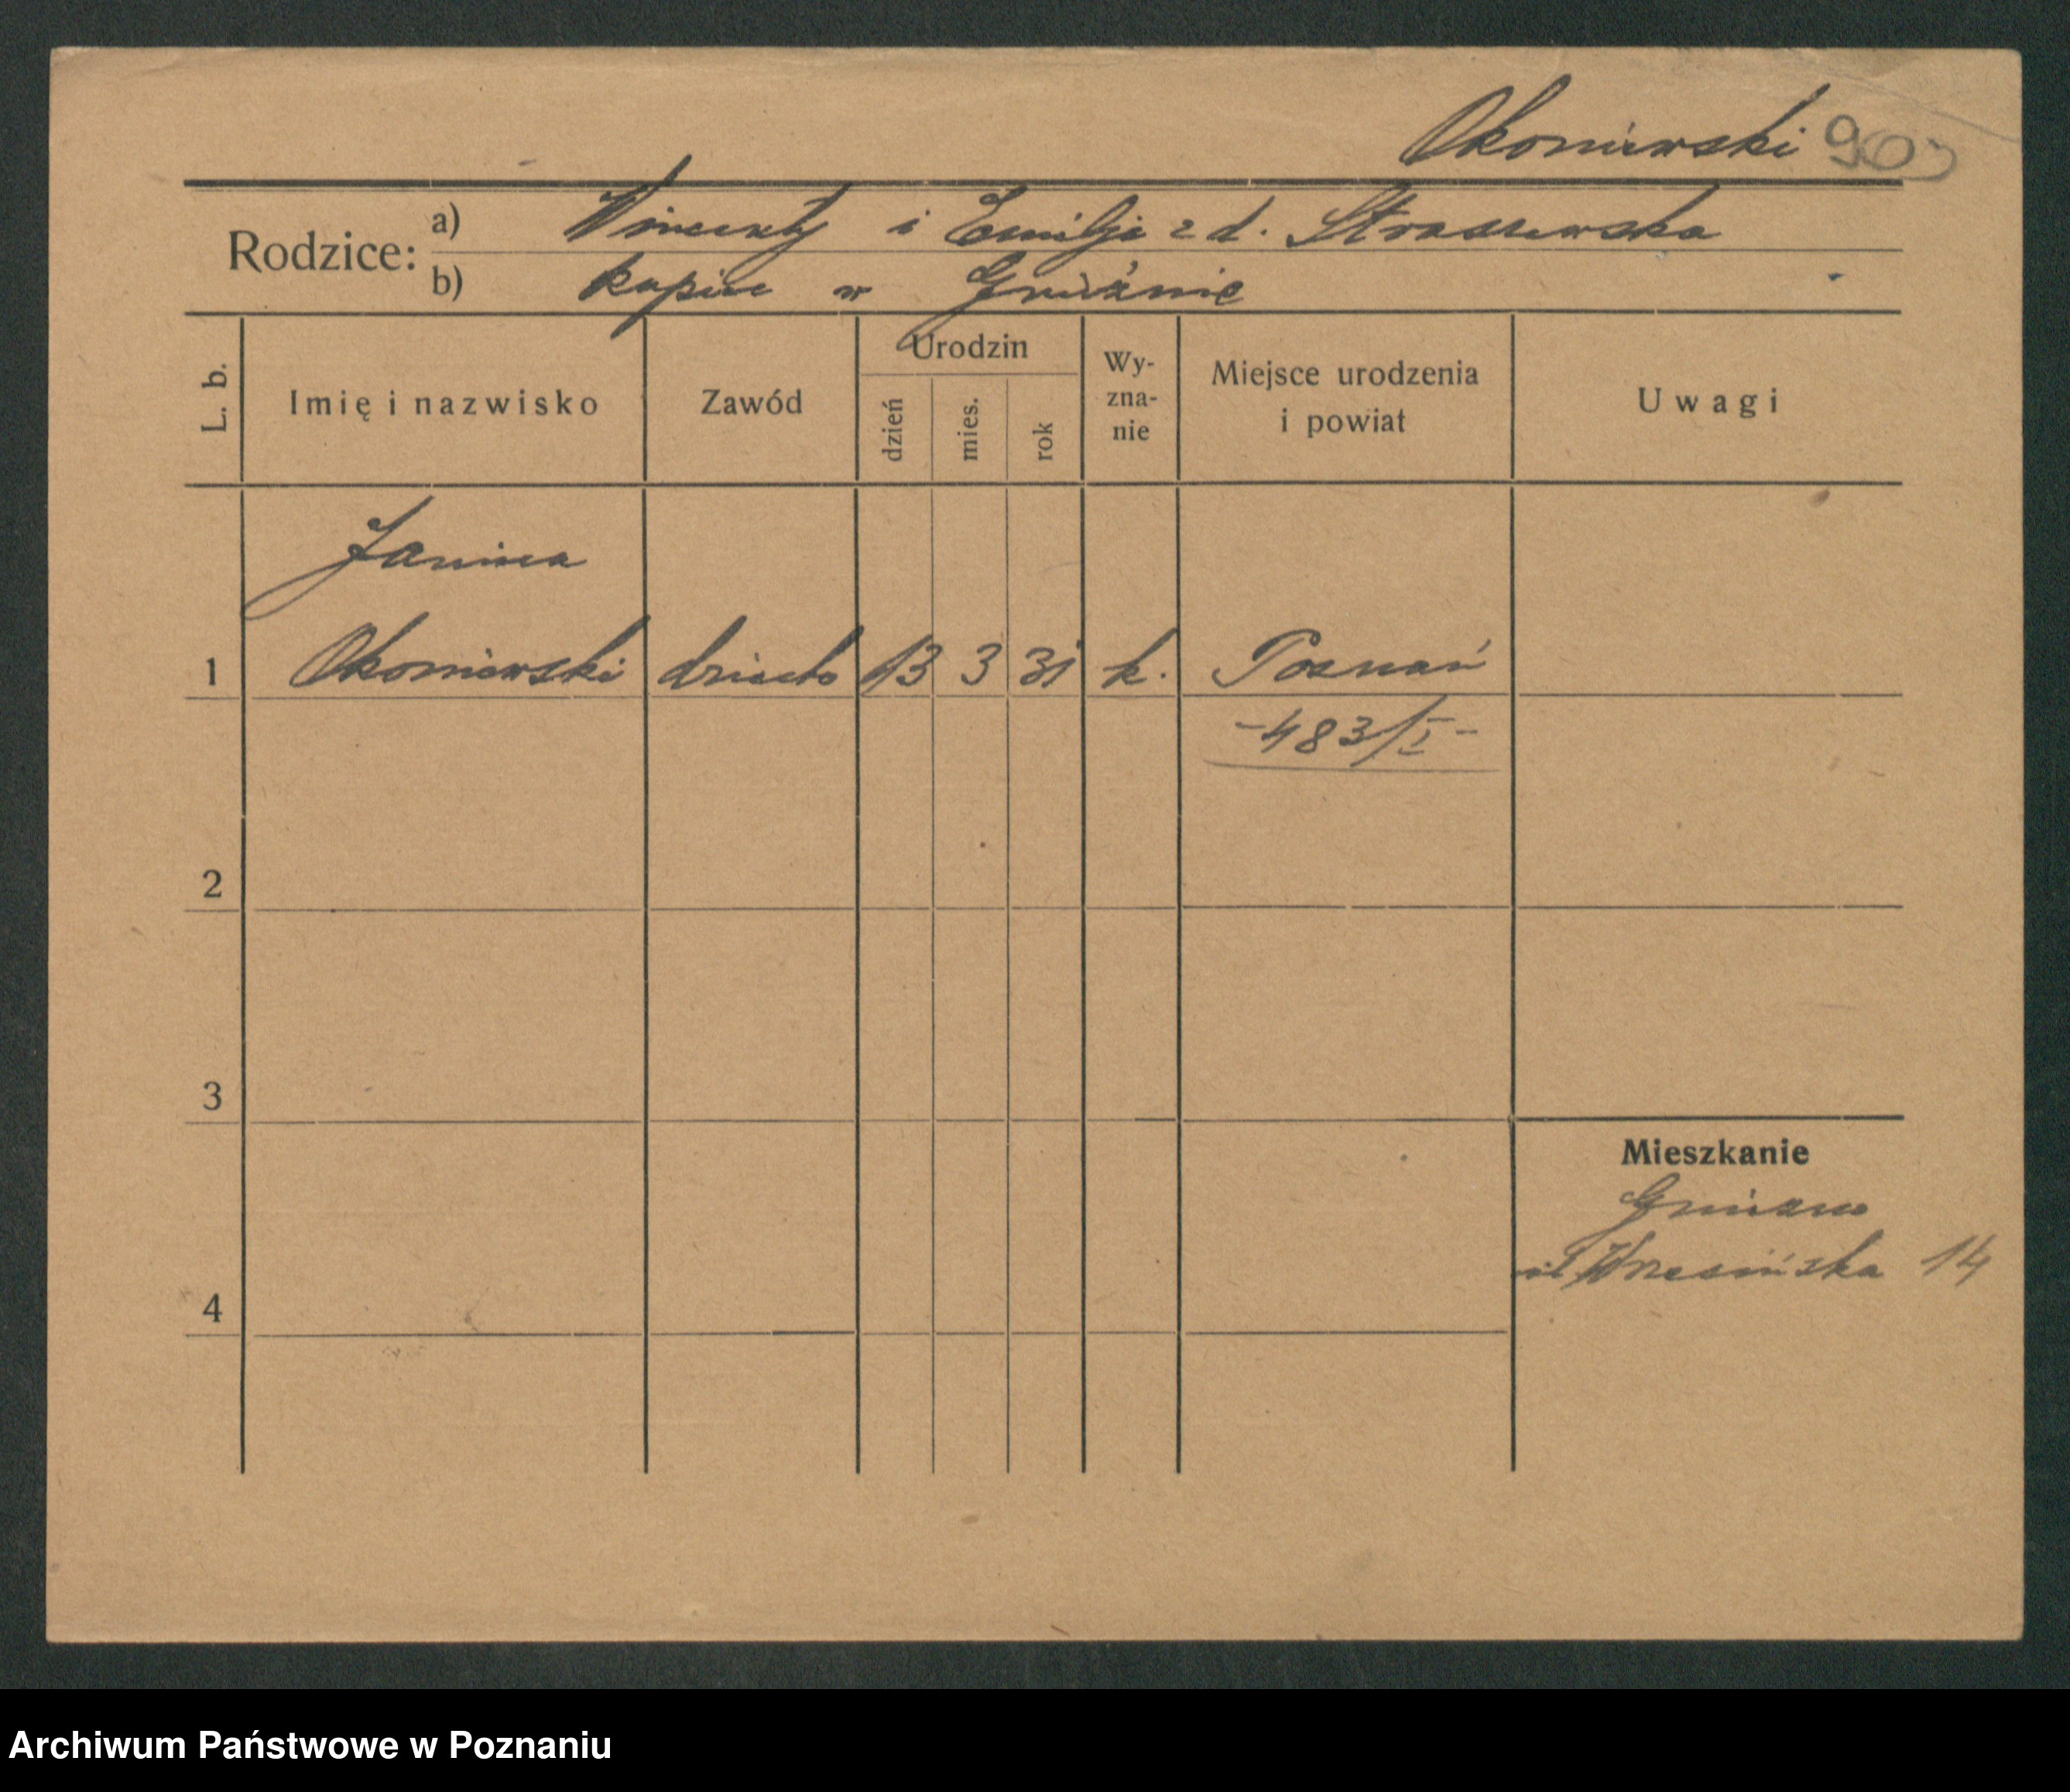 Okoniewski
Rodzice: a) Wincenty i Emilja z d. Straszewska
b) kupiec w Gnieźnie
L. b.
Imię i nazwisko
Zawód
Urodzin
dzień
mies.
rok
Wy-
zna-
nie
Miejsce urodzenia
i powiat
Uwagi
Janina
1 Okoniewski dziecko 13 3 31 k. Poznań
-483/I-
2
3
4
Mieszkanie
Gniezno
ul Wrzesińska 14
Archiwum Państwowe w Poznaniu